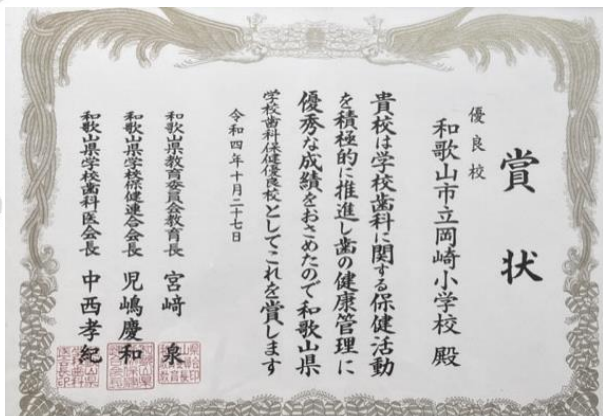 賞状
優良校
和歌山市立岡崎小学校 殿
貴校は学校歯科に関する保健活動
を積極的に推進し歯の健康管理に
優秀な成績をおさめたので和歌山県
学校歯科保健優良校としてこれを賞します
令和四年十月二十七日
和歌山県教育委員会教育長 宮﨑 泉
和歌山県学校保健連合会長 児嶋慶和
和歌山県学校歯科医会長 中西孝紀